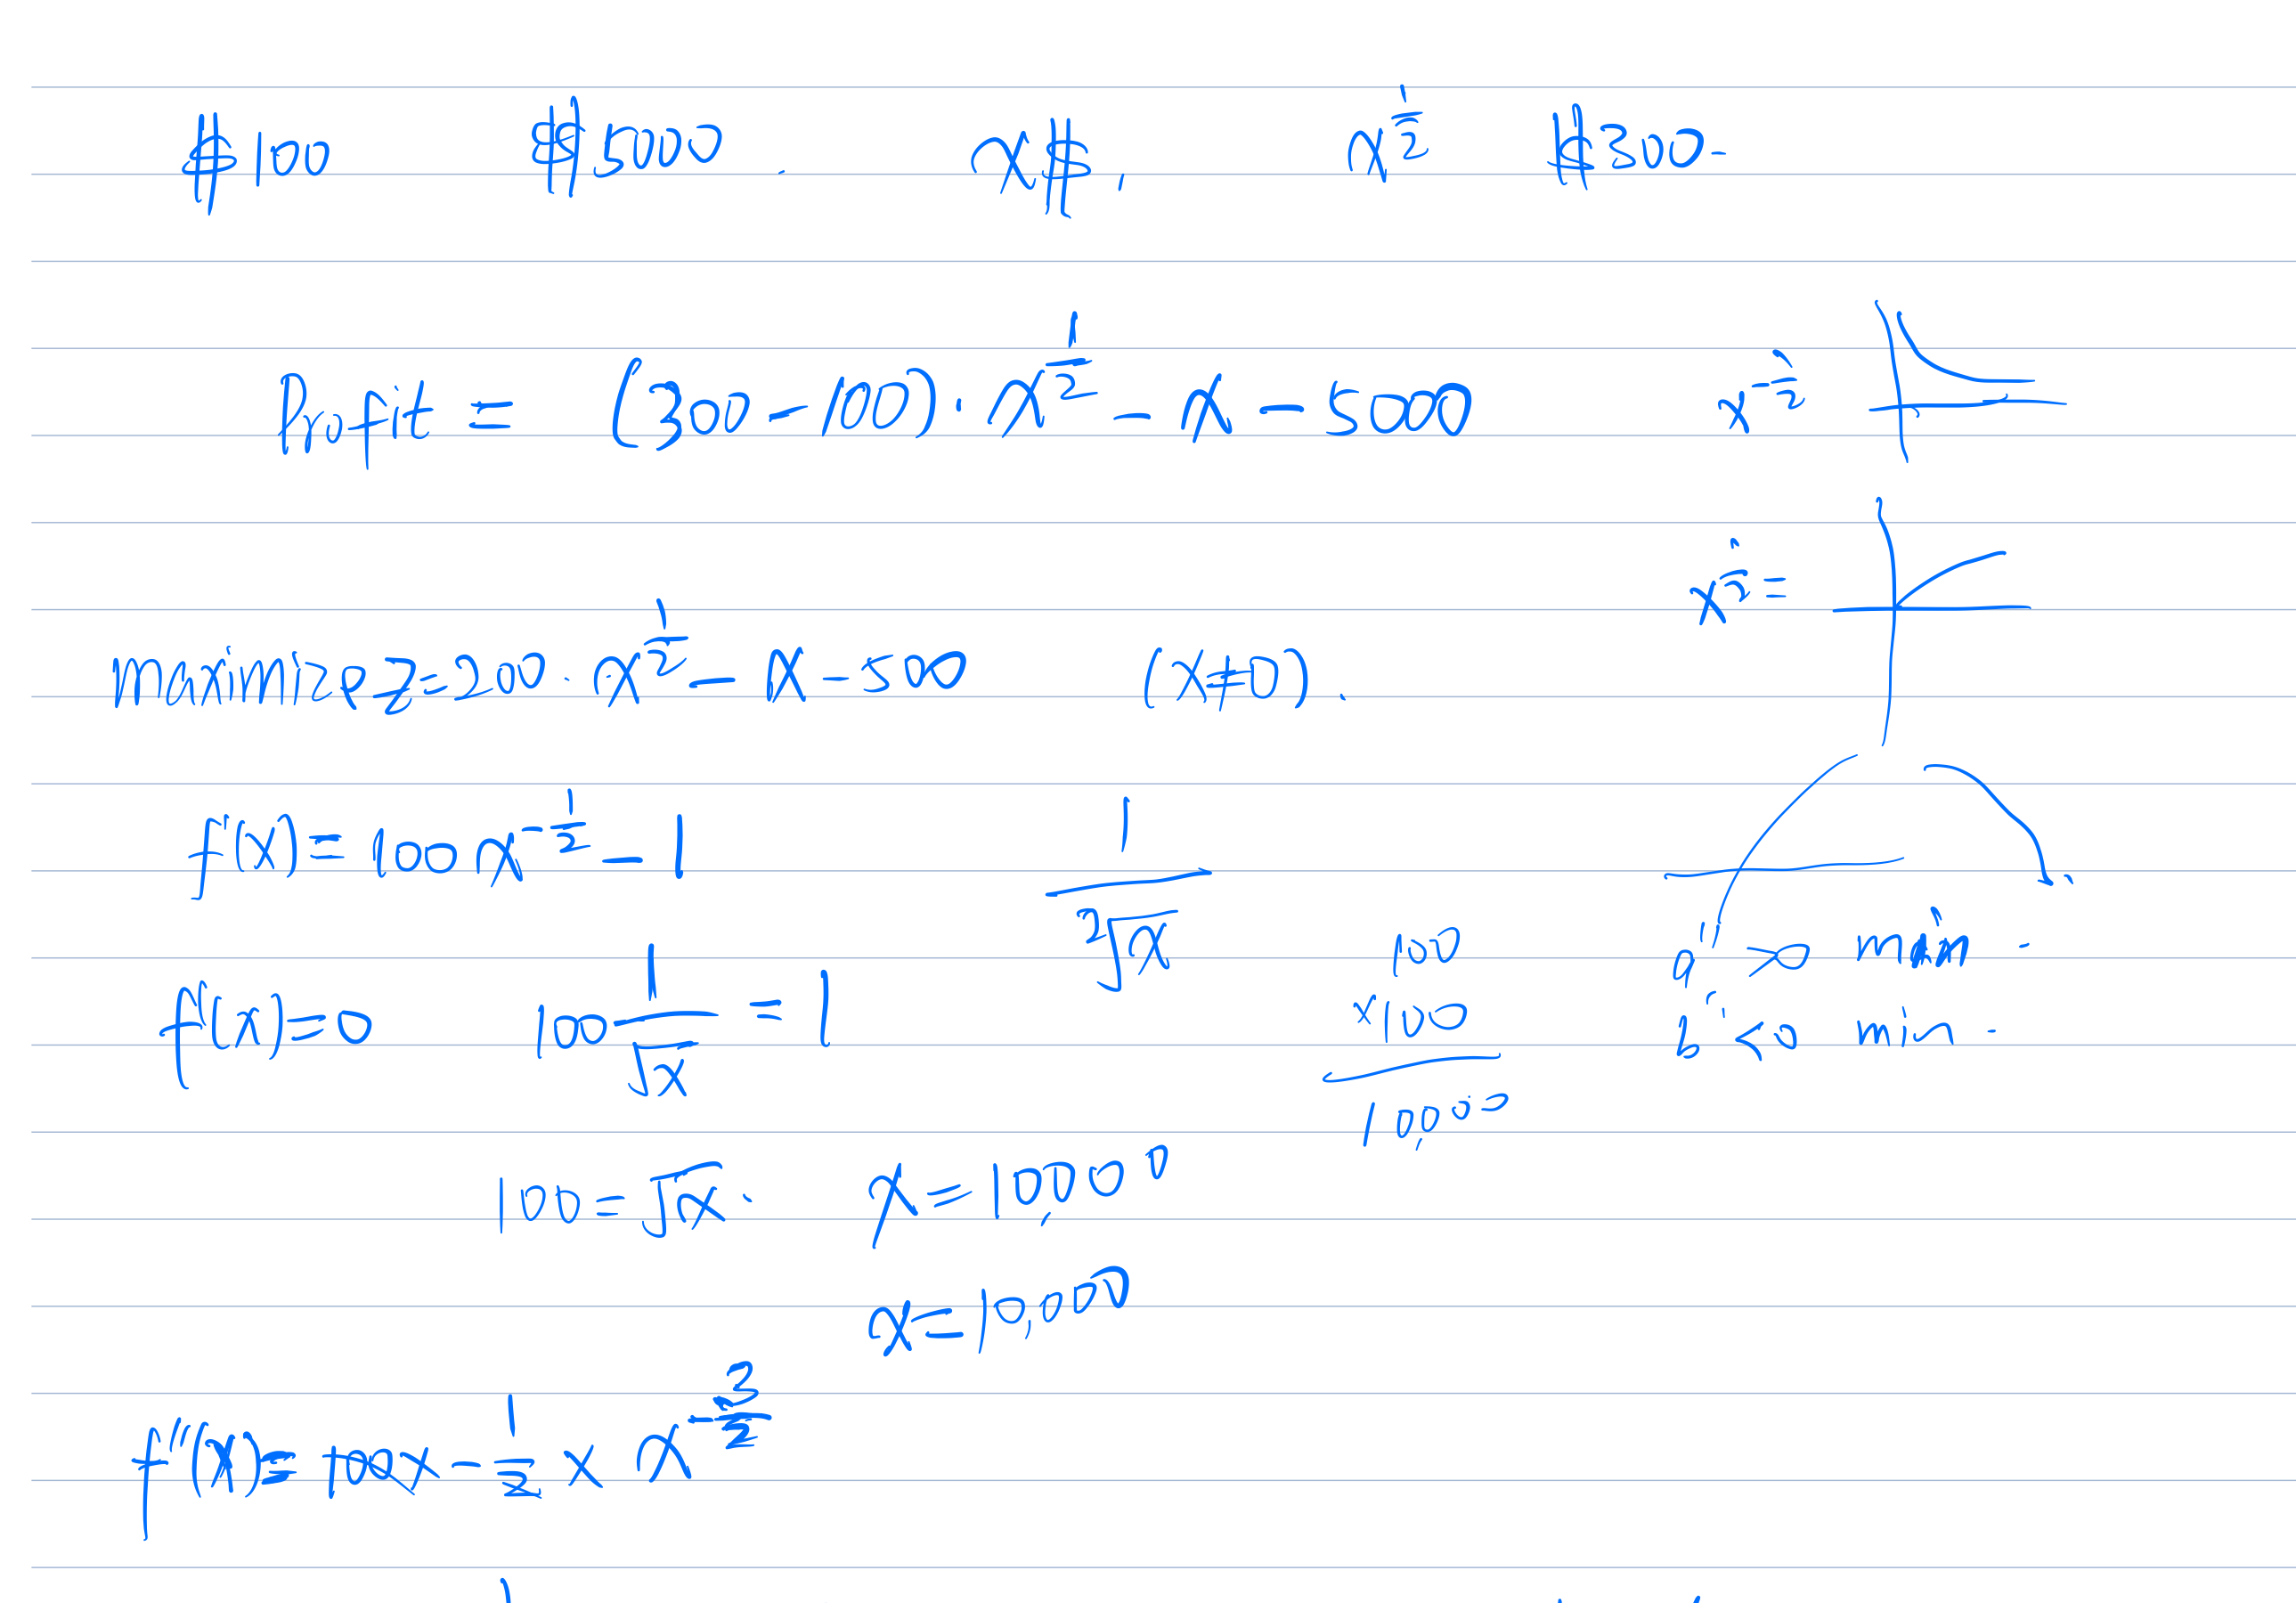 $100 $500. x$, x^{1/2} $300.
Profit = (300-100)·x^{1/2} - x - 500
x^{-1/2} =
x^{1/2} =
maximize z=200·x^{1/2} - x - 500 (x≠0).
f'(x)= 100x^{-1/2} - 1
1/²√x
f'(x)=0 100 1/√x = 1
100
×100
10,000
a" >0 min.
b" ≤0 min.
100=√x. x=10,000
x=10,000
f"(x)= 100x - 1/2 × x^{-3/2}